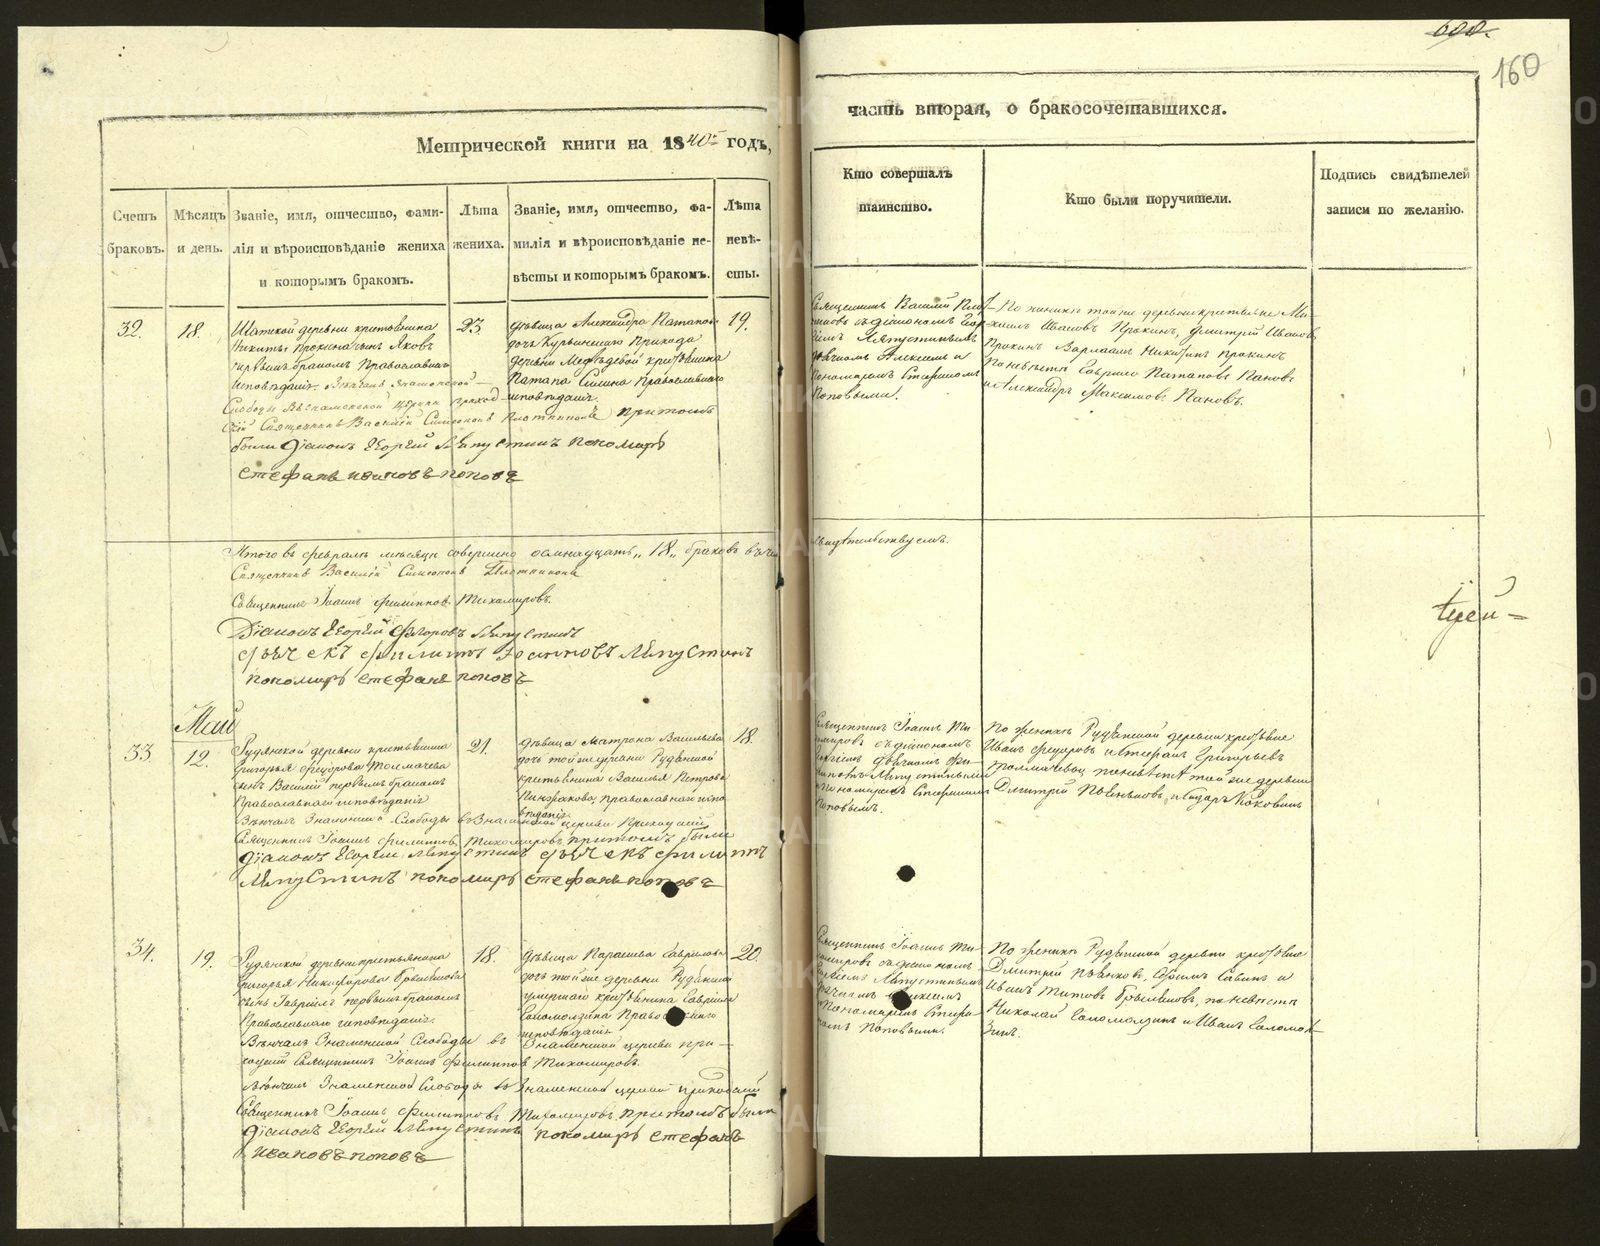 600.
160
Метрической книги на 1840й годъ,
часть вторая, о бракосочетавшихся.
Счетъ браковъ.
Мѣсяцъ и день.
Званіе, имя, отчество, фами-
лія и вѣроисповѣданіе жениха
и которымъ бракомъ.
Лѣта
жениха.
Званіе, имя, отчество, фа-
милія и вѣроисповѣданіе не-
вѣсты и которымъ бракомъ.
Лѣта
невѣ-
сты.
Кто совершалъ
таинство.
Кто были поручители.
Подпись свидѣтелей
записи по желанію.
32.
18.
деревни крестьянина
Никиты Прокина сынъ Яковъ
первымъ бракомъ Православнаго
исповѣданія. Вѣнчалъ Знаменской
Слободы Знаменской церкви приход-
скій Священникъ Василій Симеоновъ Плотниковъ притомъ
были Діаконъ Георгій Ляпустинъ пономарь
Стефанъ Ивановъ Поповъ
23.
Дѣвица Александра Патапова
дочь Курьинскаго Прихода
деревни Медвѣдевой крестьянина
Патапа Силина Православнаго
исповѣданія.
19.
Священникъ Василій Плот-
никовъ съ діакономъ Геор-
гіемъ Ляпустинымъ
дьячкомъ Алексѣемъ и
Пономаремъ Стефаномъ
Поповымъ.
По женихѣ тойже деревни крестьяне Ми-
хаилъ Ивановъ Прокинъ, Дмитрій Ивановъ
Прокинъ Варлаамъ Никитинъ Прокинъ
По невѣстѣ Гаврило Патаповъ Пановъ
и Александръ Максимовъ Пановъ.
Итого въ февралѣ мѣсяцѣ совершено осмнадцать „18„ браковъ въ чемъ
свидѣтельствуемъ.
Священникъ Василій Симеоновъ Плотниковъ
Священникъ Іоаннъ Филипповъ Тихомировъ.
Діаконъ Георгій Федоровъ Ляпустинъ
дьячекъ Филиппъ Іоанновъ Ляпустинъ
пономарь Стефанъ Поповъ
Май
33.
12.
Рудянской деревни крестьянина
Григорья Федорова Толмачева
сынъ Василій первымъ бракомъ
Православнаго исповѣданія
Вѣнчалъ Знаменской Слободы въ Знаменской церкви Приходскій
Священникъ Іоаннъ Филипповъ Тихомировъ, притомъ были
Діаконъ Георгій Ляпустинъ дьячекъ Филиппъ
Ляпустинъ пономарь Стефанъ Поповъ
21.
Дѣвица Матрона Васильева
дочь той же деревни Рудянской
крестьянина Василья Петрова
Православнаго испо-
вѣданія.
18.
Священникъ Іоаннъ Ти-
хомировъ съ діакономъ
Георгіемъ дьячкомъ Фи-
липпомъ Ляпустиными
и Пономаремъ Стефаномъ
Поповымъ.
По женихѣ Рудянской деревни крестьяне
Иванъ Федоровъ и Стефанъ Григорьевъ
Толмачевы по невѣстѣ той же деревни
Дмитрій Пьянковъ, и Сидоръ Коковинъ
34.
19.
Рудянской деревни крестьянина
Григорья Никифорова
сынъ Гавріилъ первымъ бракомъ
Православнаго исповѣданія.
Вѣнчалъ Знаменской Слободы въ Знаменской церкви при-
ходскій Священникъ Іоаннъ Филипповъ Тихомировъ.
Вѣнчалъ Знаменской Слободы въ Знаменской церкви приходскій
Священникъ Іоаннъ Филипповъ Тихомировъ притомъ были
Діаконъ Георгій Ляпустинъ пономарь Стефанъ
Ивановъ Поповъ
18.
Дѣвица Парасковья Гаврилова
дочь той же деревни Рудянской
умершаго крестьянина Гавриила
Соломолзина Православнаго
исповѣданія
20.
Священникъ Іоаннъ Ти-
хомировъ съ діакономъ
Георгіемъ Ляпустинымъ
дьячкомъ Алексѣемъ
и Пономаремъ Стефа-
номъ Поповыми.
По женихѣ Рудянской деревни крестьяне
Дмитрій Пьянковъ, Ефимъ Савинъ и
Иванъ Титовъ по невѣстѣ
Николай Соломолзинъ и Иванъ Соломол-
зинъ.
іерей